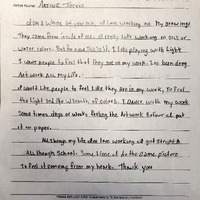 Artist Name: Arthur Travis
a Whole of you one. I love working on my drawings
They come from inside of me. I really like working in oils or
water colors. But the one Thing is I like playing with Light
I want people to feel that they are in my work. I've been doing
Art work All My Life.
I would like people to feel like they are in my work, To feel
the light and the warmth of colors. I dance with my work
Some times days or weeks feeling the Art work before I put
it on paper.
All through my life I was working and got straight A
All through School. Some times I do the same picture
To feel it coming from my heart. Thank you